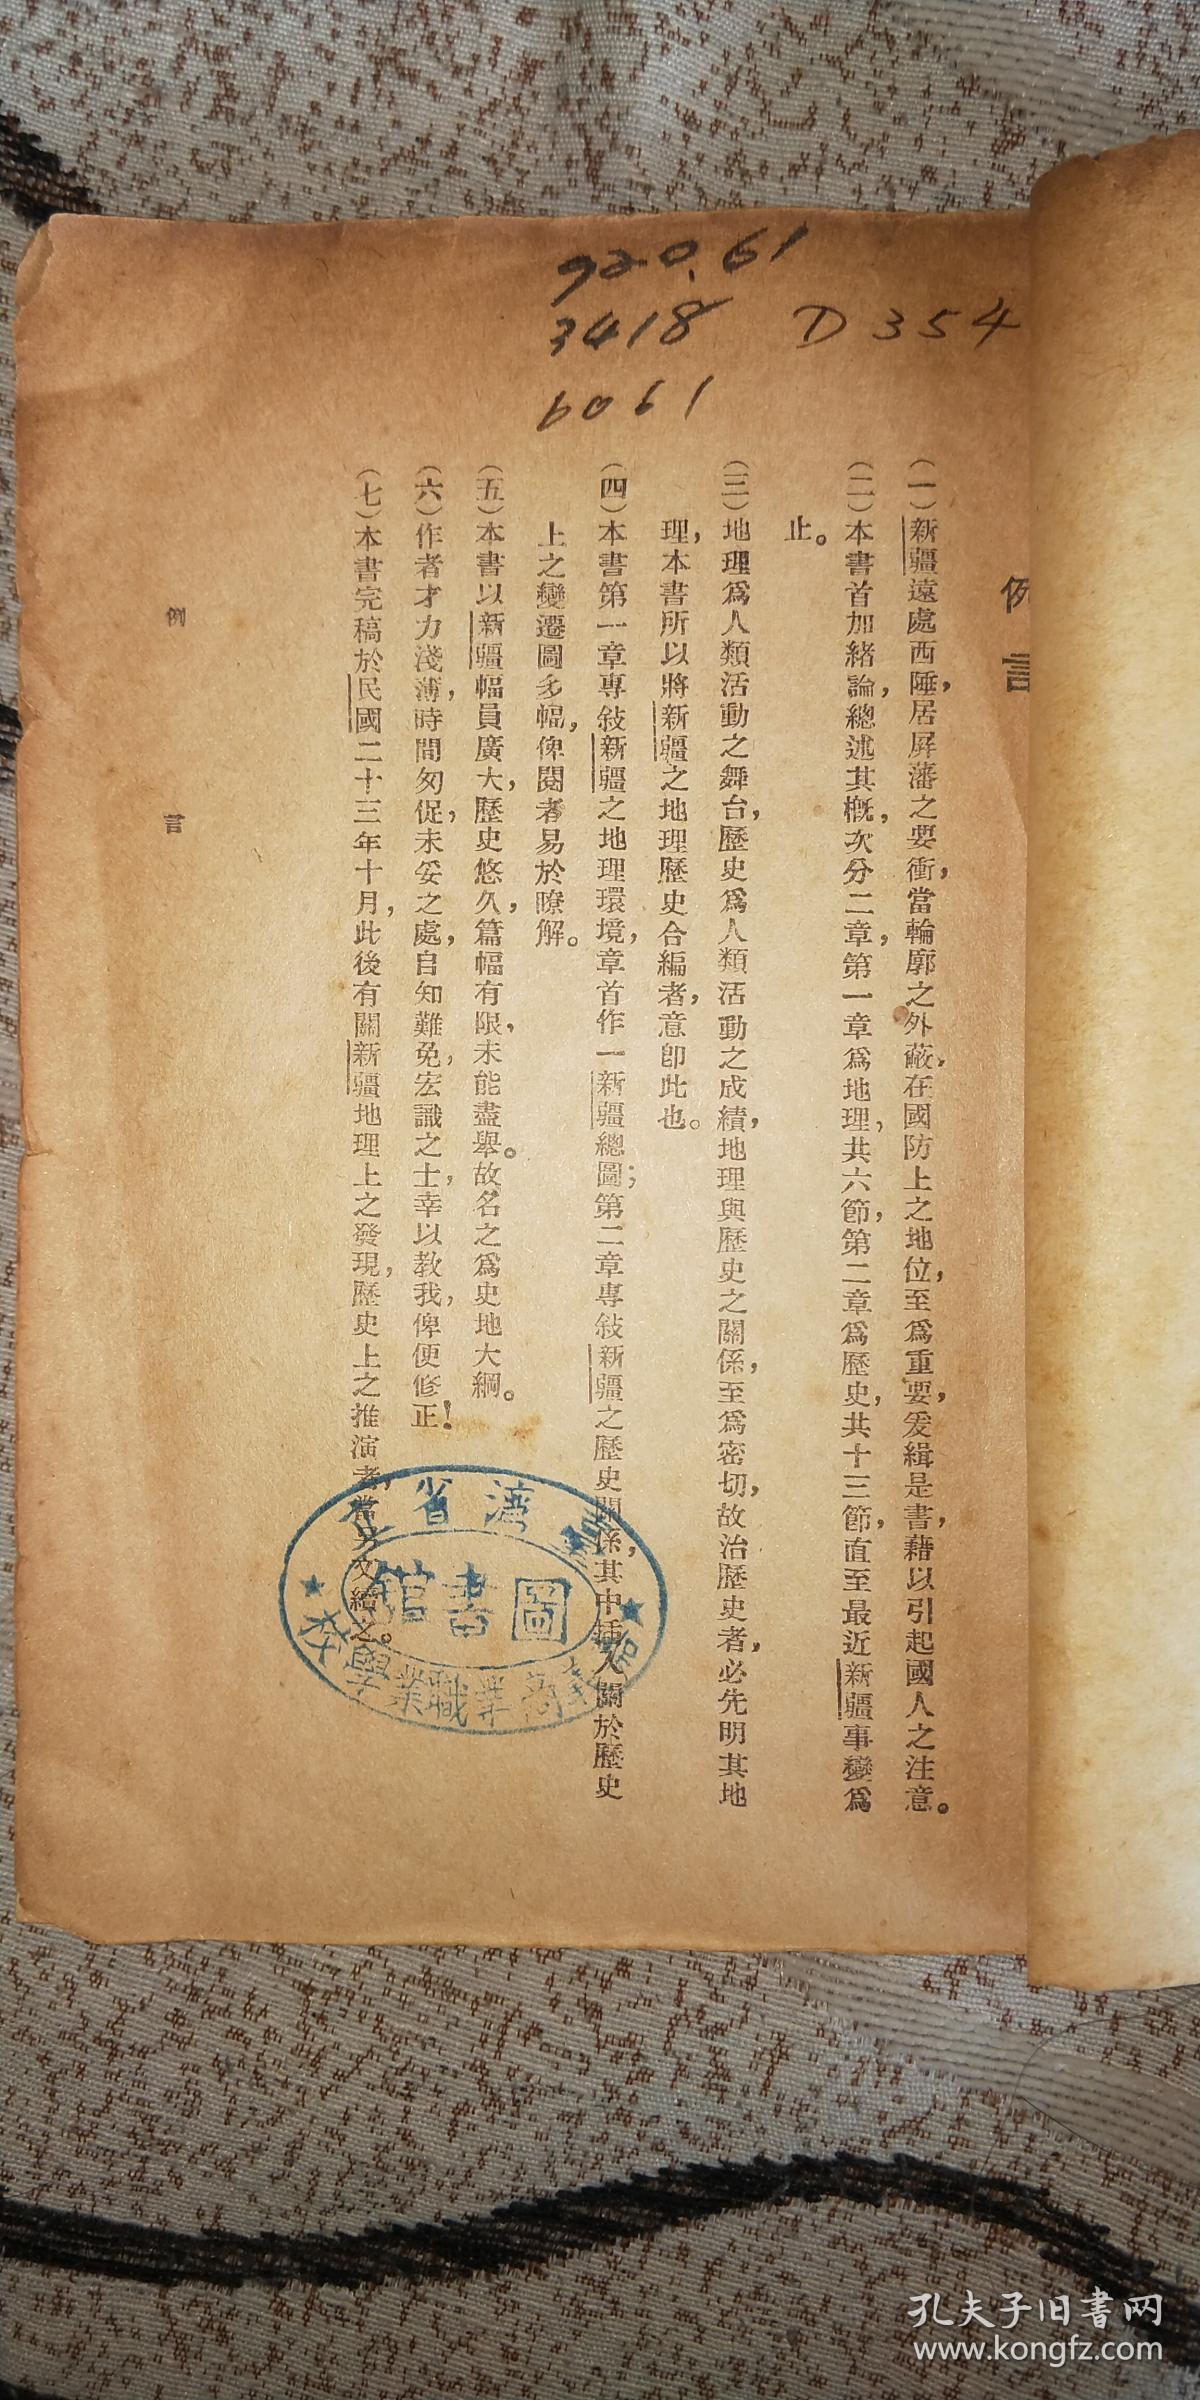 920.61
3418 D354
6061
例言
(一)新疆遠處西陲,居屏藩之要衝,當輪廓之外蔽,在國防上之地位,至爲重要,爰緝是書,藉以引起國人之注意。
(二)本書首加緒論,總述其概,次分二章,第一章爲地理,共六節,第二章爲歷史,共十三節,直至最近新疆事變爲
止。
(三)地理爲人類活動之舞台,歷史爲人類活動之成績,地理與歷史之關係,至爲密切,故治歷史者,必先明其地
理,本書所以將新疆之地理歷史合編者,意即此也。
(四)本書第一章專敍新疆之地理環境,章首作一新疆總圖;第二章專敍新疆之歷史關係,其中插入關於歷史
上之變遷圖多幅,俾閱者易於暸解。
(五)本書以新疆幅員廣大,歷史悠久,篇幅有限,未能盡舉。故名之爲史地大綱。
(六)作者才力淺薄,時間匆促,未妥之處,自知難免,宏識之士,幸以敎我,俾便修正!
(七)本書完稿於民國二十三年十月,此後有關新疆地理上之發現,歷史上之推演者,當另文續之。
例言
臺灣省立
商業職業學校
圖書館
孔夫子旧書网
www.kongfz.com